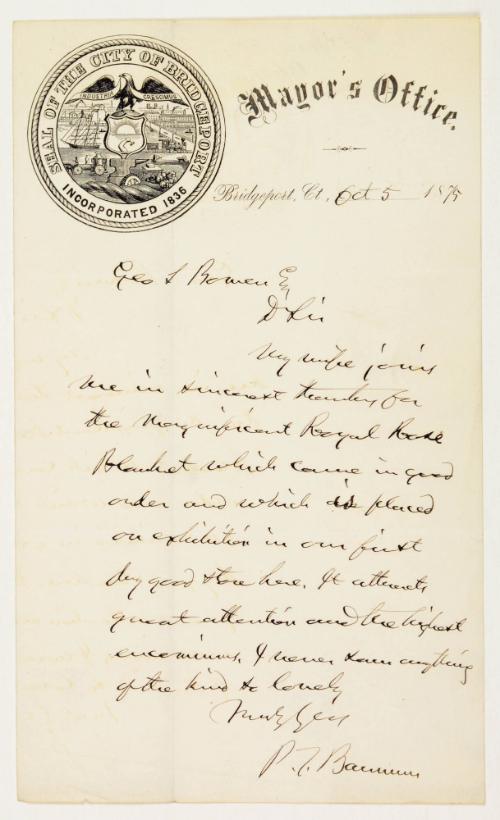 SEAL OF THE CITY OF BRIDGEPORT
INDUSTRIA CRESCIMUS
INCORPORATED 1836
Mayor's Office.
Bridgeport, Ct, Oct 5 1875
Geo S Bowen Esq
D Sir
My wife joins
me in sincerest thanks for
the magnificent Royal Rose
Blanket which came in good
order and which is placed
on exhibition in our first
dry good store here. It attracts
great attention and the highest
encomiums. I never saw anything
of the kind so lovely
Truly Yours
P. T. Barnum